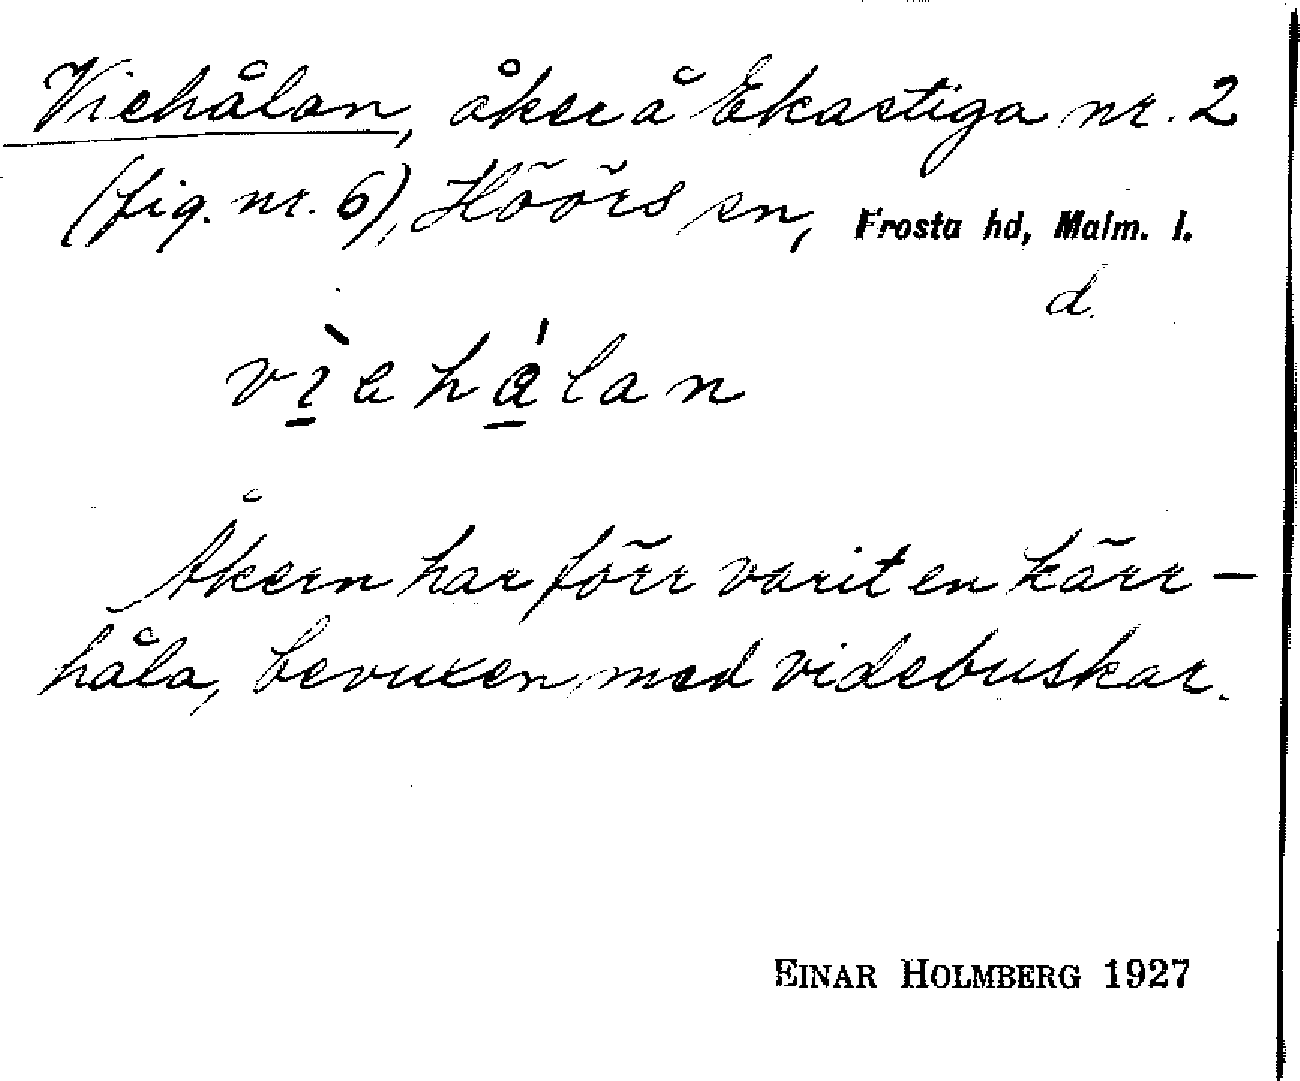 Viehålan, åker å Ekastiga nr. 2
(fig. nr. 6), Höörs sn, Frosta hd, Malm. l.
d.
vìehålan
Åkern har förr varit en kärr-
håla, bevuxen med videbuskar.
EINAR HOLMBERG 1927